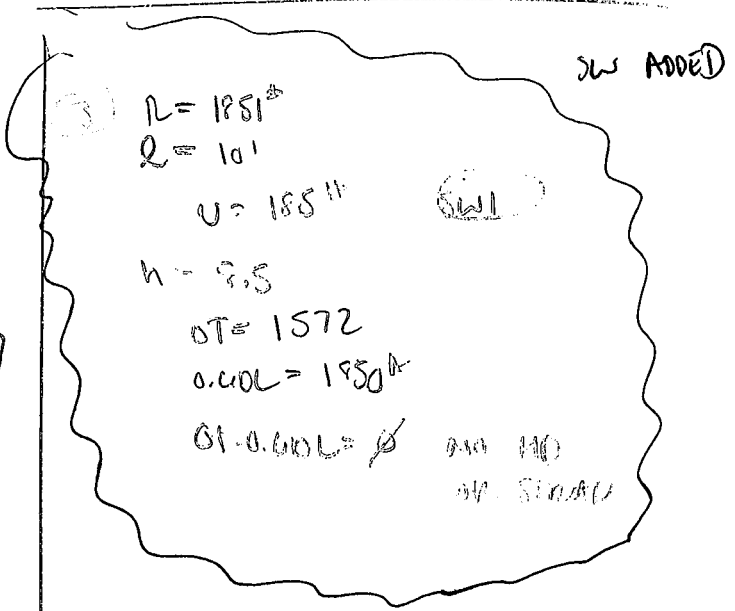 SW ADDED
3 R= 1851#
l= 10'
V= 185#
SW1
h = 8.5
OT= 1572
0.6DL= 1850#
OT-0.6DL= Ø NO HD
OR